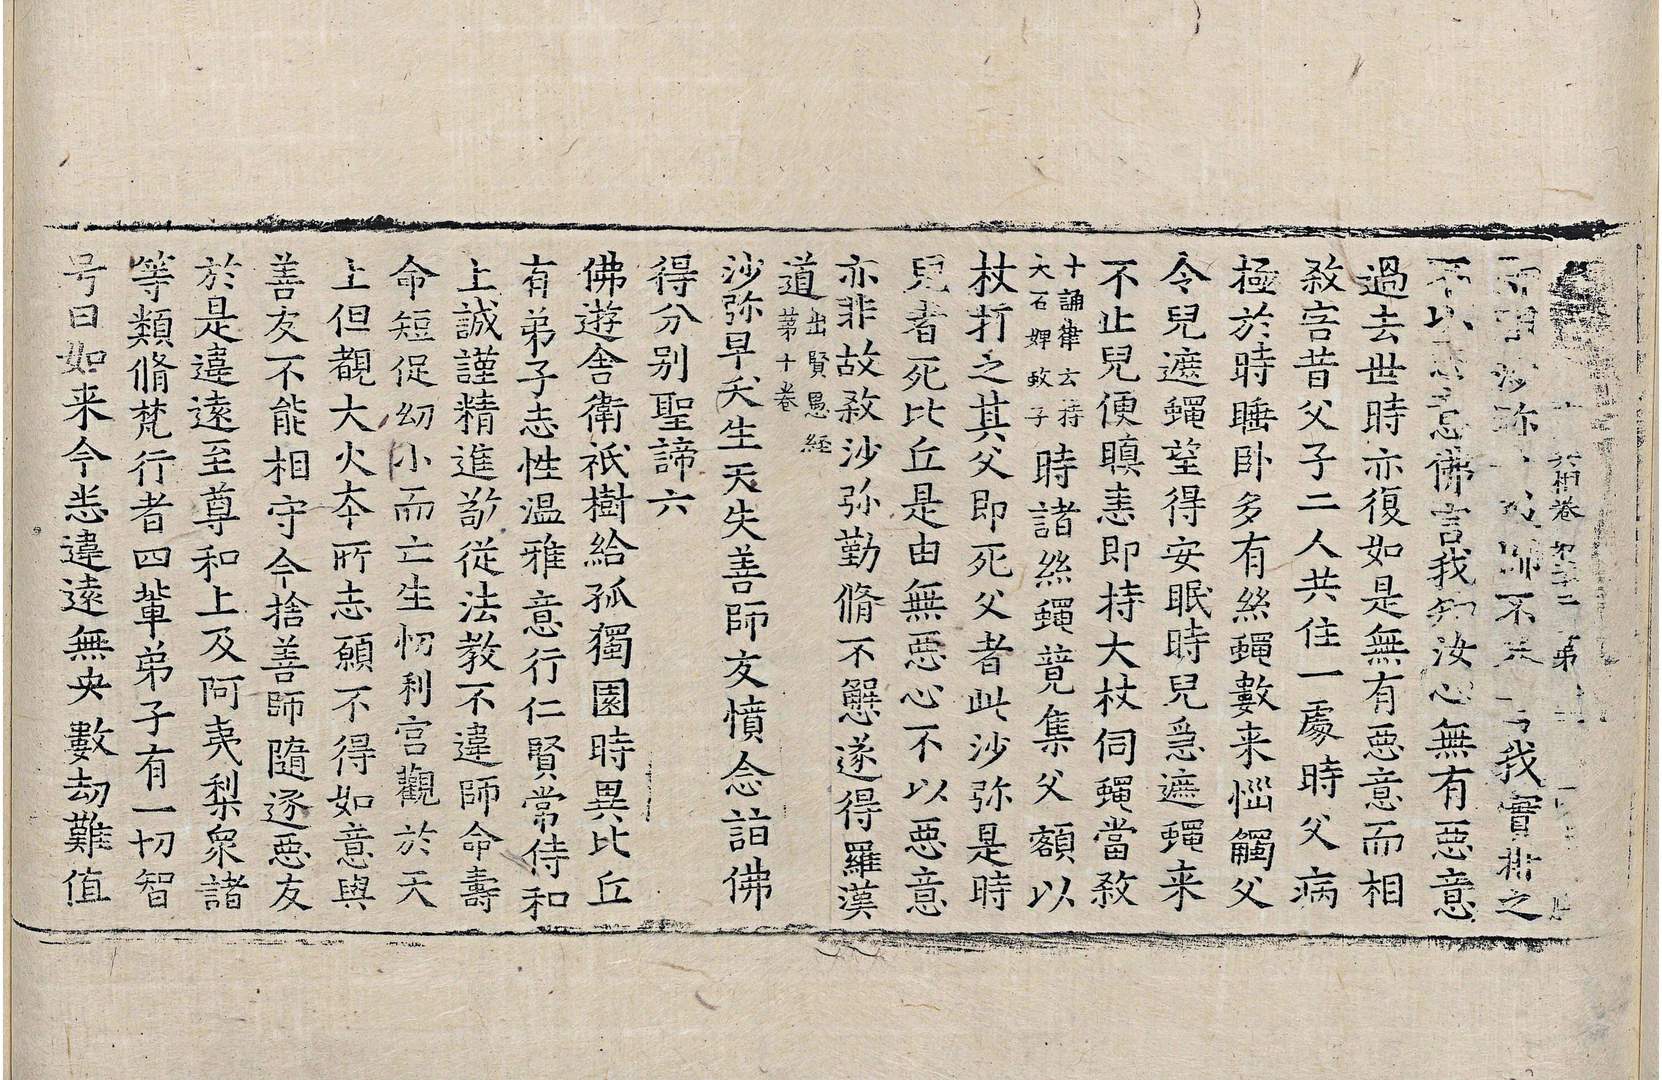 經律異相卷第二十二 第
沙弥 師不 言我實推之
不以惡 佛言我知汝心無有惡意
過去世時亦復如是無有惡意而相
煞害昔父子二人共住一處時父病
極於時睡卧多有絲蠅數来惱觸父
令兒遮蠅望得安眠時兒爲遮蠅来
不止兒便瞋恚即持大杖伺蠅當煞
十誦律云持
大石婢致子
時諸絲蠅競集父額以
杖打之其父即死父者此沙弥是時
兒者死比丘是由無惡心不以惡意
亦非故煞沙弥勤脩不懈遂得羅漢
道
出賢愚經
第十卷
沙弥早夭生天失善師友憤念詣佛
得分别聖諦六
佛遊舍衛祇樹給孤獨園時異比丘
有弟子志性温雅意行仁賢常侍和
上誠謹精進敬從法教不違師命壽
命短促幼小而亡生忉利宫觀於天
上但覩大火夲所志願不得如意與
善友不能相守今捨善師隨逐惡友
於是違遠至尊和上及阿夷梨衆諸
等類脩梵行者四輩弟子有一切智
号曰如来今悉違遠無央數劫難值